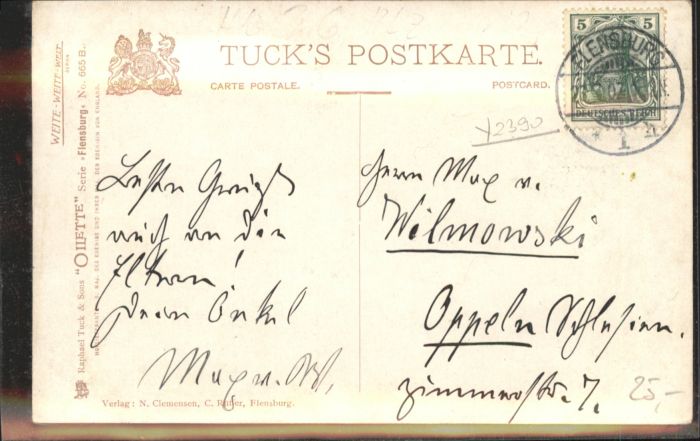 TUCK'S POSTKARTE.
CARTE POSTALE.
POSTCARD.
WEITE-WEITE-WELT
Raphael Tuck & Sons "OILETTE" Serie "Flensburg" No. 665 B.
5 5
DEUTSCHES REICH
FLENSBURG
* 1 h
Y2390
Besten Gruß
auch an die
Eltern!
Dein Onkel
Max v. W.
Herrn Max v.
Wilmowski
Oppeln Schlesien.
Zimmerstr. 7.
25,-
Verlag: N. Clemensen, C. Flensburg.